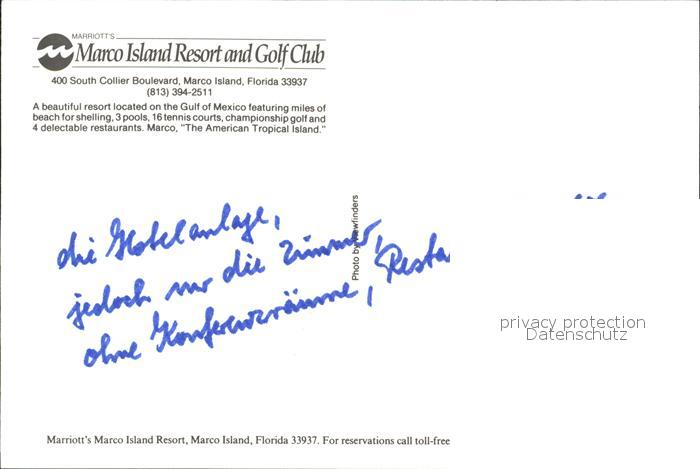 MARRIOTT'S
Marco Island Resort and Golf Club
400 South Collier Boulevard, Marco Island, Florida 33937
(813) 394-2511
A beautiful resort located on the Gulf of Mexico featuring miles of
beach for shelling, 3 pools, 16 tennis courts, championship golf and
4 delectable restaurants. Marco, "The American Tropical Island."
Photo by Viewfinders
die Hotelanlage,
jedoch nur die Zimmer,
ohne Konferenzräume, Resta
privacy protection
Datenschutz
Marriott's Marco Island Resort, Marco Island, Florida 33937. For reservations call toll-free